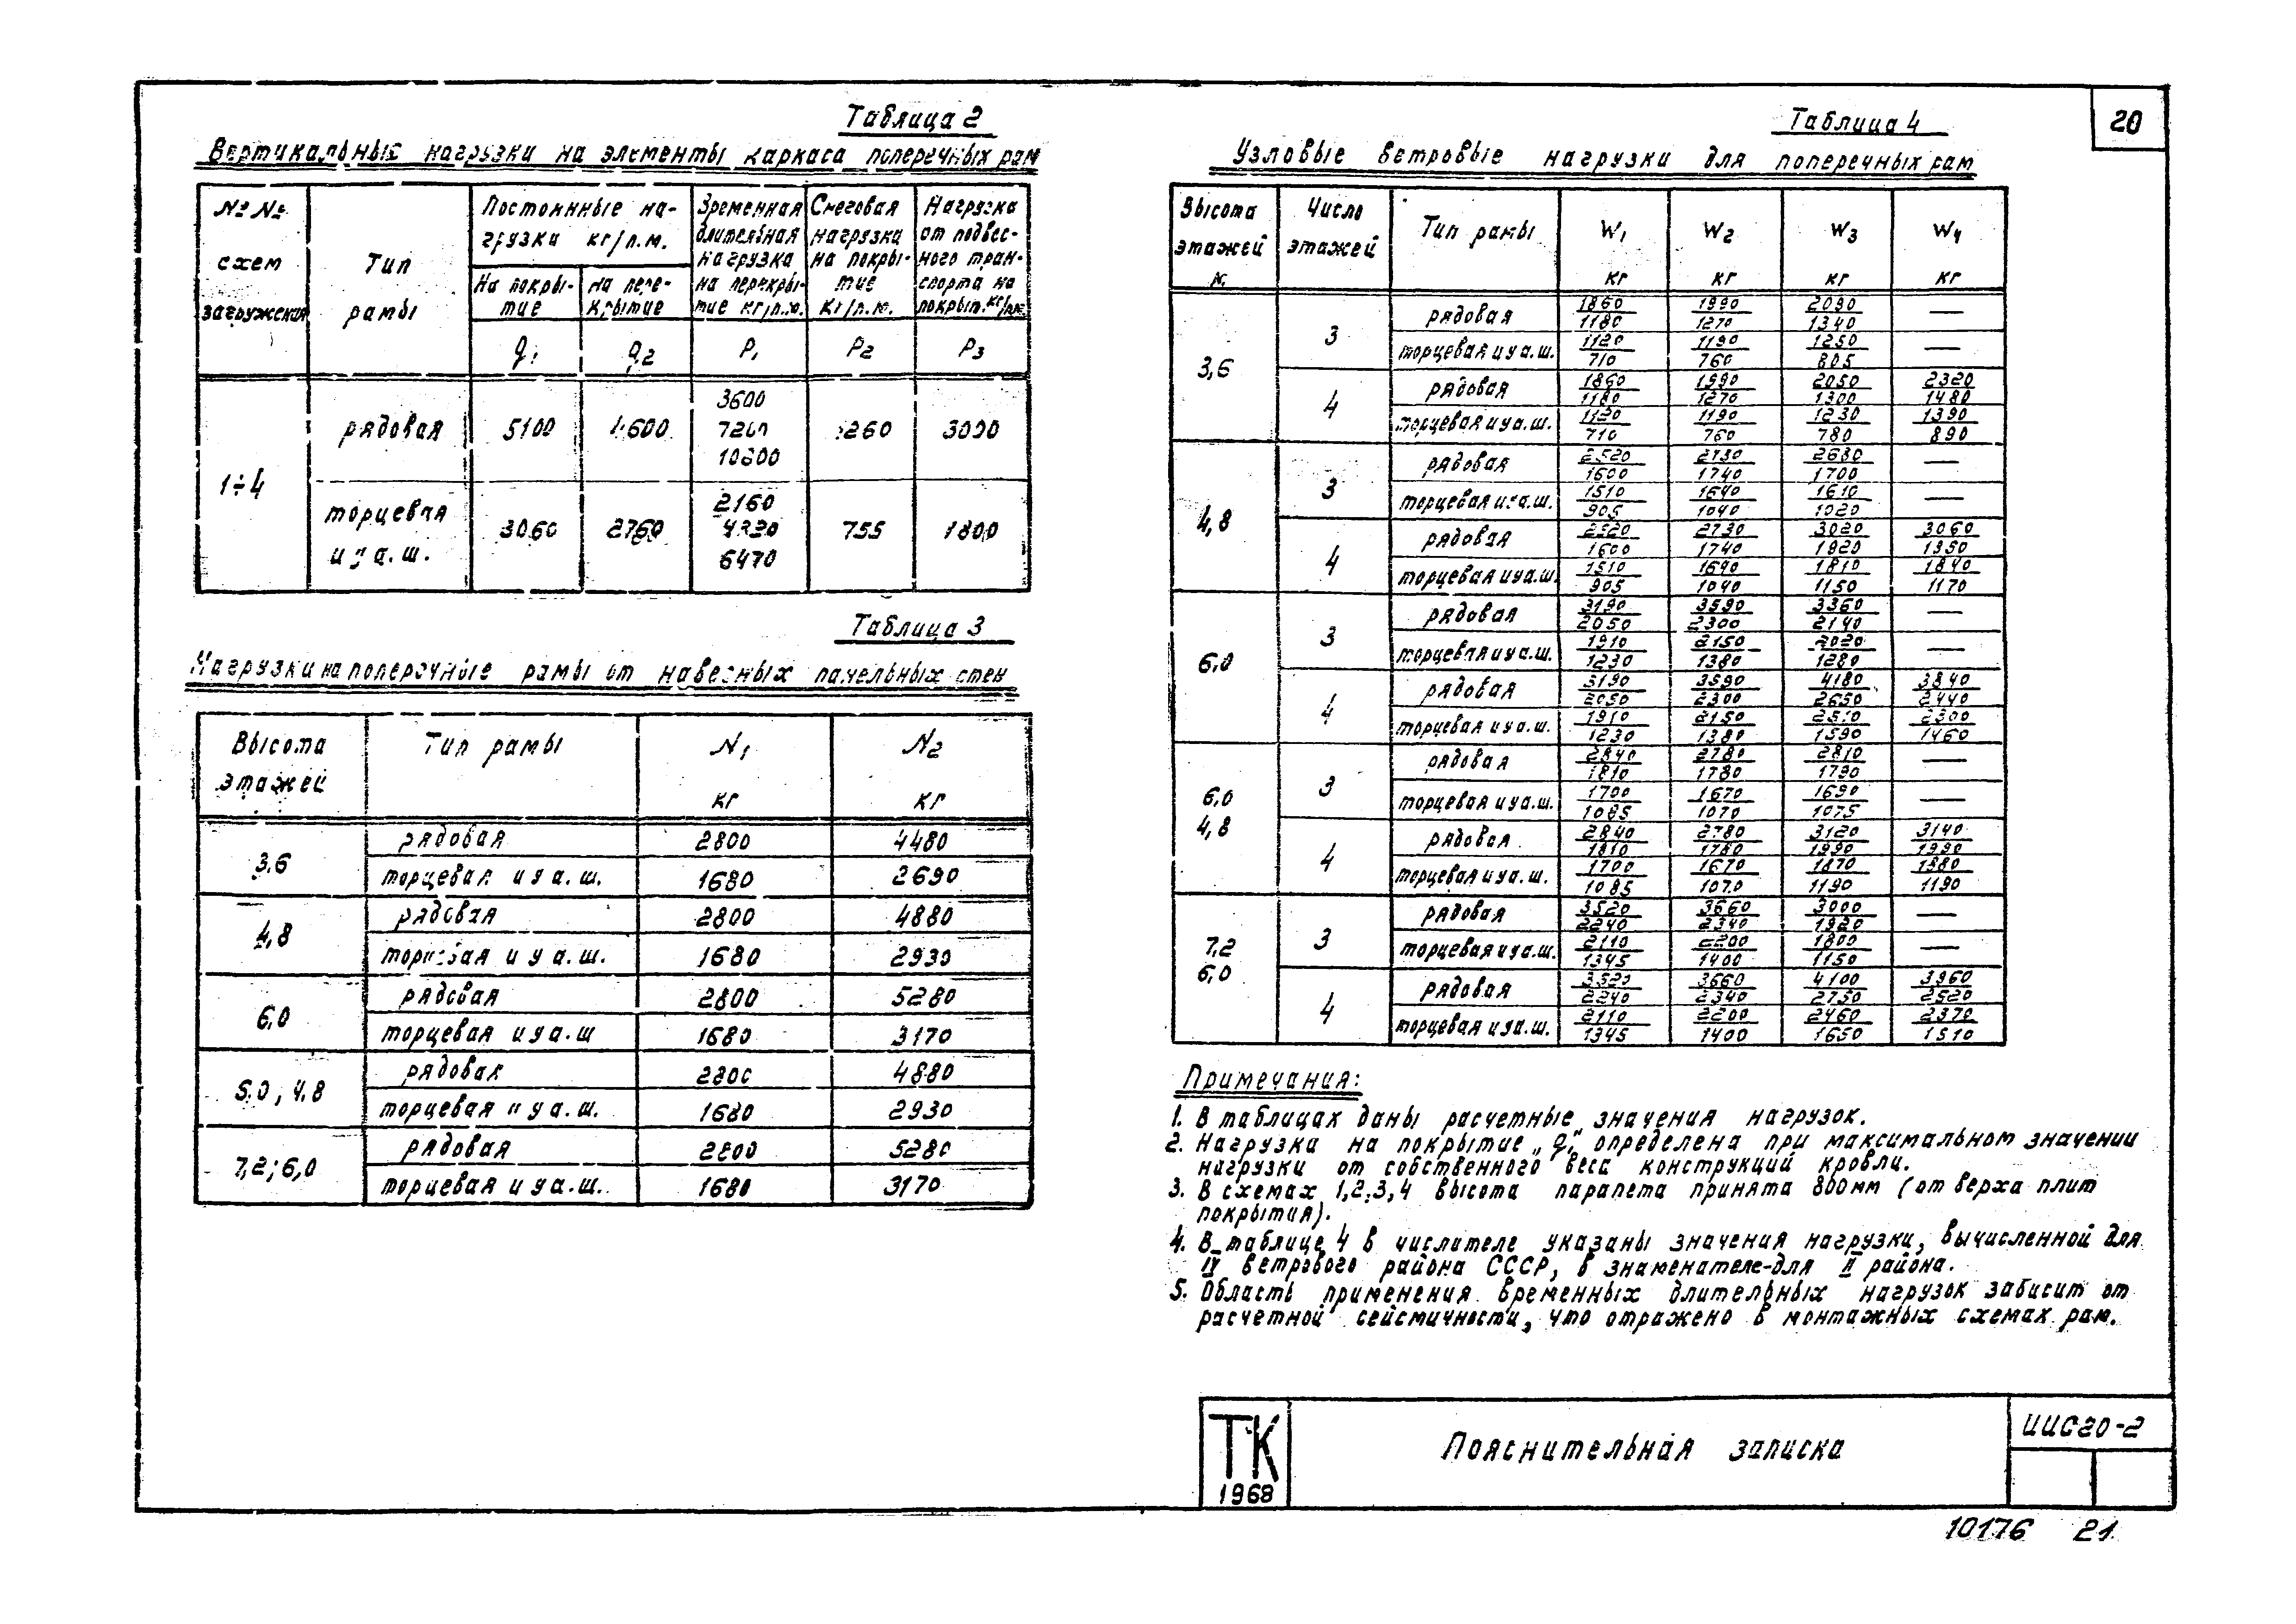 20
Таблица 2
Вертикальные нагрузки на элементы каркаса поперечных рам
№ № схем загружения | Тип рамы | Постоянные нагрузки кг/п.м. | Временная длительная нагрузка на перекрытие кг/п.м. | Снеговая нагрузка на покрытие кг/п.м. | Нагрузка от подвесного транспорта на покрыт. кг/п.м.
На покрытие | на перекрытие
q1 | q2 | P1 | P2 | P3
1÷4 | рядовая | 5100 | 4600 | 3600 7200 10800 | 1260 | 3000
торцевая и у а.ш. | 3060 | 2760 | 2160 4320 6470 | 755 | 1800
Таблица 3
Нагрузки на поперечные рамы от навесных панельных стен
Высота этажей | Тип рамы | N1 кг | N2 кг
3.6 | рядовая | 2800 | 4480
торцевая и у а.ш. | 1680 | 2690
4,8 | рядовая | 2800 | 4880
торцевая и у а.ш. | 1680 | 2930
6,0 | рядовая | 2800 | 5280
торцевая и у а.ш | 1680 | 3170
6.0, 4.8 | рядовая | 2800 | 4880
торцевая и у а.ш. | 1680 | 2930
7,2; 6,0 | рядовая | 2800 | 5280
торцевая и у а.ш. | 1680 | 3170
Таблица 4
Узловые ветровые нагрузки для поперечных рам
Высота этажей м. | Число этажей | Тип рамы | W1 кг | W2 кг | W3 кг | W4 кг
3,6 | 3 | рядовая | 1860/1180 | 1990/1270 | 2090/1340 | —
торцевая и у а.ш. | 1120/710 | 1190/760 | 1250/805 | —
4 | рядовая | 1860/1180 | 1990/1270 | 2050/1300 | 2320/1480
торцевая и у а.ш. | 1120/710 | 1190/760 | 1230/780 | 1390/890
4,8 | 3 | рядовая | 2520/1600 | 2730/1740 | 2680/1700 | —
торцевая и у а.ш. | 1510/905 | 1640/1040 | 1610/1020 | —
4 | рядовая | 2520/1600 | 2730/1740 | 3020/1920 | 3060/1950
торцевая и у а.ш. | 1510/905 | 1640/1040 | 1810/1150 | 1840/1170
6,0 | 3 | рядовая | 3190/2050 | 3590/2300 | 3360/2140 | —
торцевая и у а.ш. | 1910/1230 | 2150/1380 | 2020/1280 | —
4 | рядовая | 3190/2050 | 3590/2300 | 4180/2650 | 3840/2440
торцевая и у а.ш. | 1910/1230 | 2150/1380 | 2510/1590 | 2300/1460
6,0 4,8 | 3 | рядовая | 2840/1810 | 2780/1780 | 2810/1790 | —
торцевая и у а.ш. | 1700/1085 | 1670/1070 | 1690/1075 | —
4 | рядовая | 2840/1810 | 2780/1780 | 3120/1990 | 3140/1990
торцевая и у а.ш. | 1700/1085 | 1670/1070 | 1870/1190 | 1880/1190
7,2 6,0 | 3 | рядовая | 3520/2240 | 3660/2340 | 3000/1920 | —
торцевая и у а.ш. | 2110/1345 | 2200/1400 | 1800/1150 | —
4 | рядовая | 3520/2240 | 3660/2340 | 4100/2750 | 3960/2520
торцевая и у а.ш. | 2110/1345 | 2200/1400 | 2460/1650 | 2370/1510
Примечания:
1. В таблицах даны расчетные значения нагрузок.
2. Нагрузка на покрытие „q1“ определена при максимальном значении
нагрузки от собственного веса конструкций кровли.
3. В схемах 1,2,3,4 высота парапета принята 800мм (от верха плит
покрытия).
4. В таблице 4 в числителе указаны значения нагрузки, вычисленной для
IV ветрового района СССР, в знаменателе-для II района.
5. Область применения временных длительных нагрузок зависит от
расчетной сейсмичности, что отражено в монтажных схемах рам.
ТК
1968
Пояснительная записка
ИИС20-2
10176 21